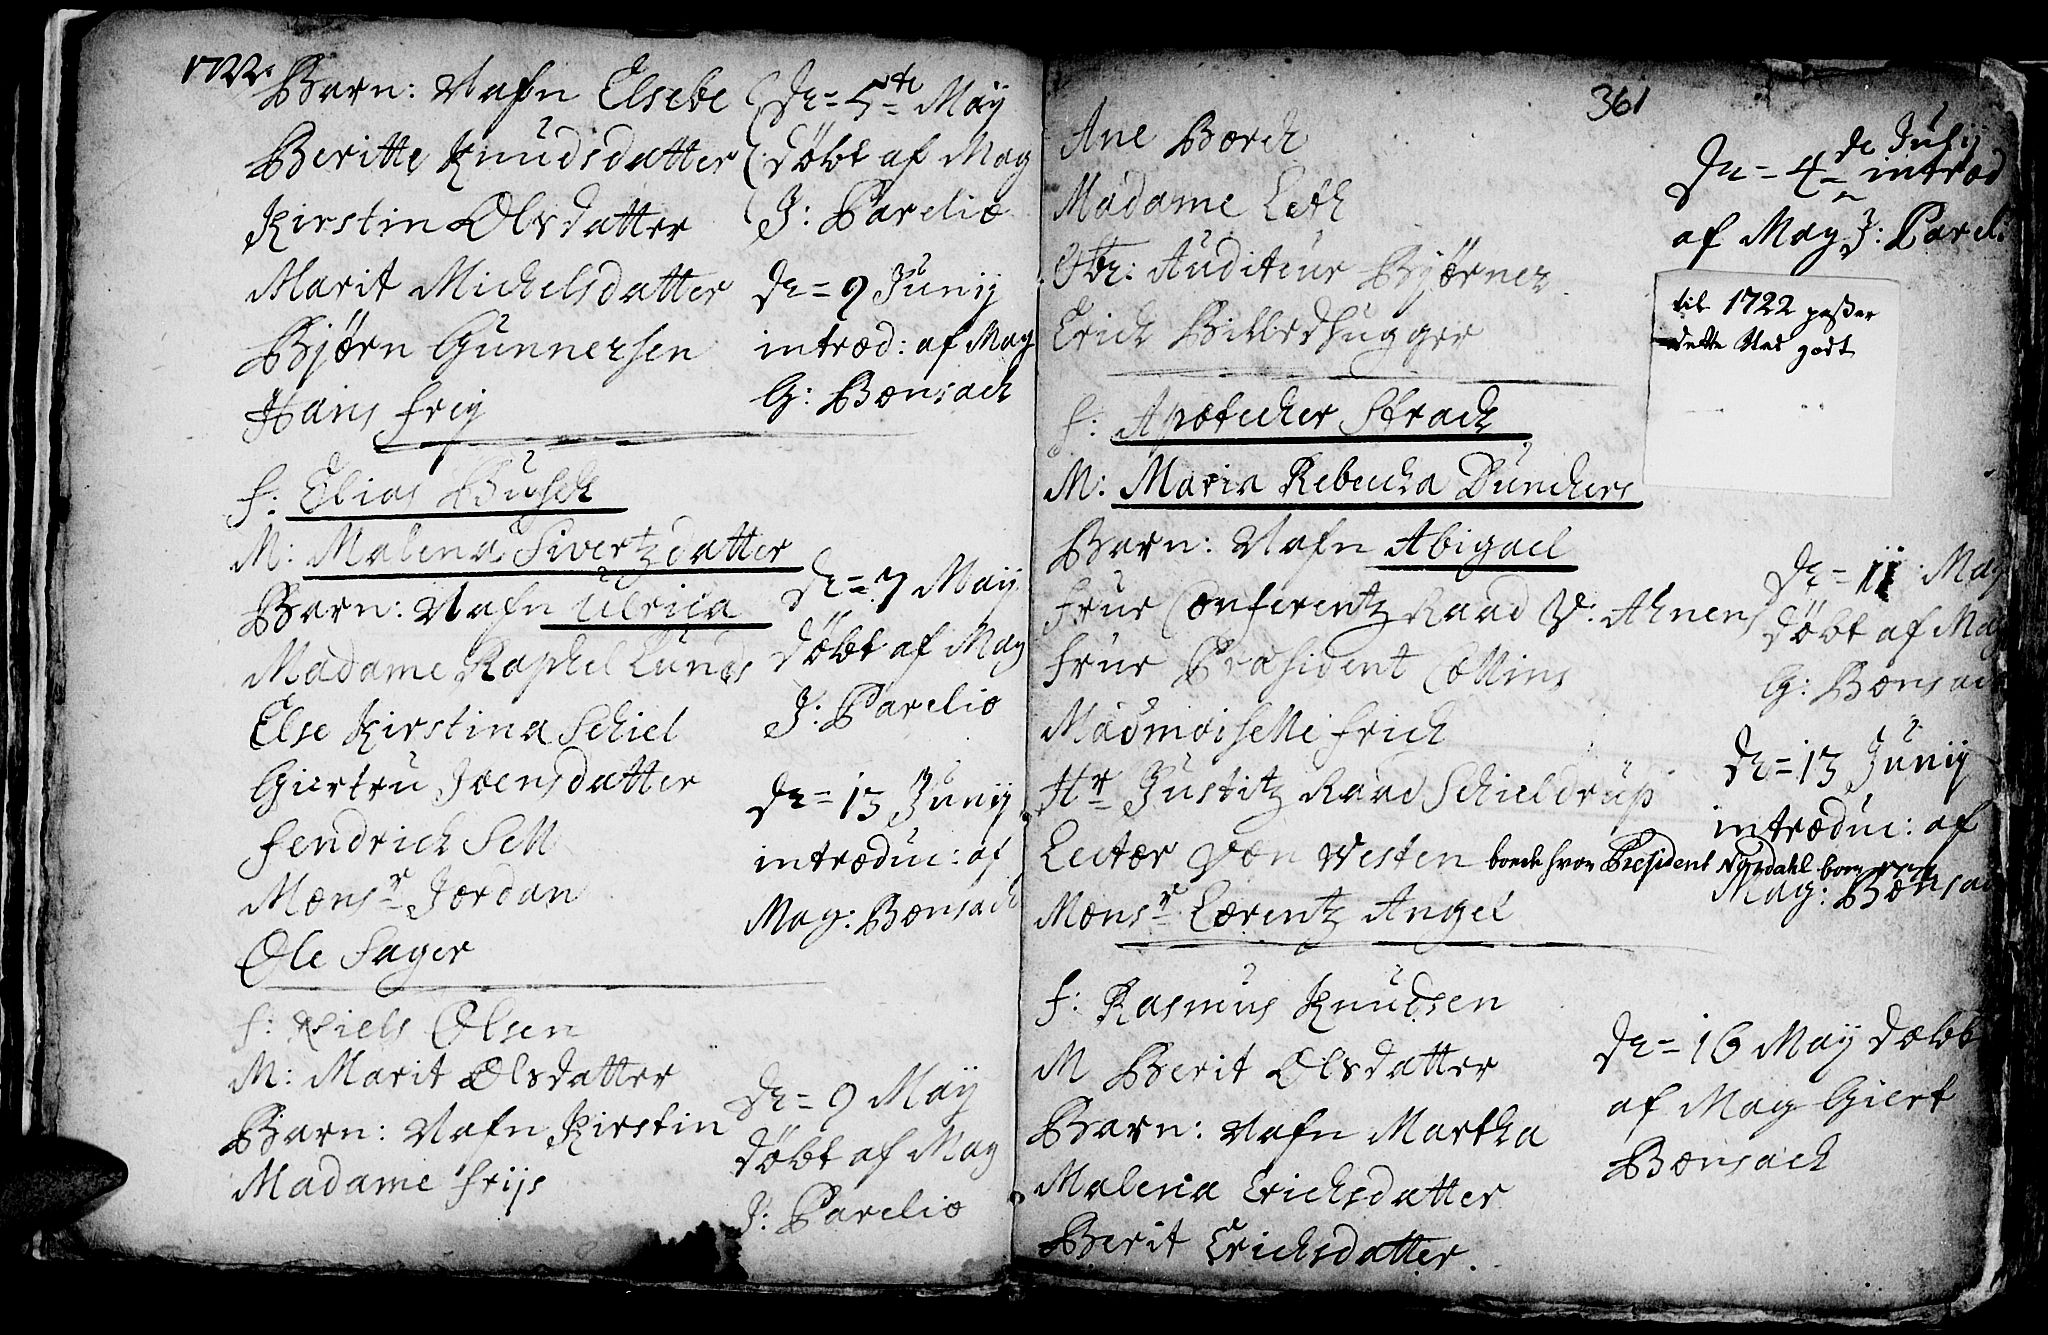 1722.
Barn: Nafn Elsebe
Beritte Knudsdatter
Kirstin Olsdatter
Marit Michelsdatter
Bjørn Gunnersen
Hans friy
De = 5te Maÿ
döbt af Mag
J: Parelio
De = 9 Junij
introd: af Mag
G: Bonsach
f: Elias Busch
M: Malena Sivertzdatter
Barn: Nafn Ulrica
Madame Raphel Lunds
Else Kirstina Schiel
Giertru Joensdatter
fendrich Sell
Monsr Jordan
Ole Sager
De = 7 Maÿ
döbt af Mag
J: Parelio
De = 13 Junij
introduc: af
Mag: Bonsach
f: Niels Olsen
M: Marit Olsdatter
Barn: Nafn Kirstin
Madame frijs
De = 9 Maÿ
döbt af Mag
J: Parelio
361
Ane Borch
Madame Leth
Hr: Auditeur Bjørner
Erich Billedhugger
De = 4de Julij
introd
af Mag J: Pareli
til 1722 paßer
dette Sted godt
f: Apotecher Strach
M: Maria Rebecka Dunchers
Barn: Nafn Abigael
frur Conferentz Raad V: Ahnens
frur Præsident Collins
Madmoiselle frich
Hr Justitz Raad Schieldrup
Lector von Westen boede hvor President Nordahl boer
Monsr Lorentz Angel
De = 11 Maÿ
döbt af Mag
G: Bonsach
De = 13 Junij
introduc: af
Mag: Bonsach
f: Rasmus Knudsen
M Berit Olsdatter
Barn: Nafn Martha
Malena Erichsdatter
Berit Erichsdatter.
De = 16 Maÿ dobt
af Mag Giert
Bonsach